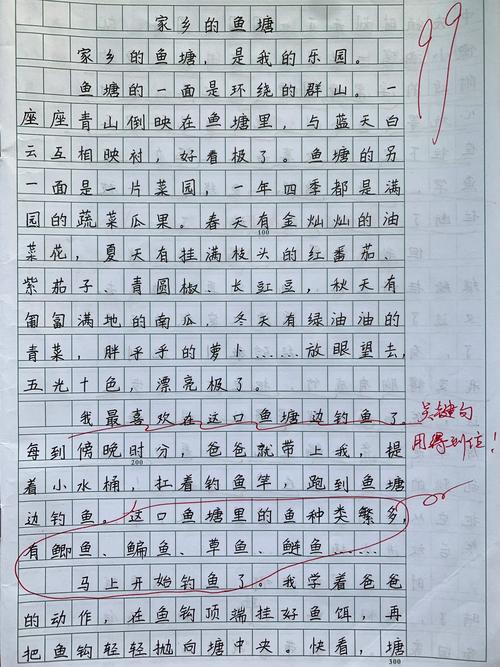 家乡的鱼塘
家乡的鱼塘，是我的乐园。
鱼塘的一面是环绕的群山。一
座座青山倒映在鱼塘里，与蓝天白
云互相映衬，好看极了。鱼塘的另
一面是一片菜园，一年四季都是满
园的蔬菜瓜果。春天有金灿灿的油
100
菜花，夏天有挂满枝头的红番茄、
紫茄子、青圆椒、长豇豆，秋天有
匍匐满地的南瓜，冬天有绿油油的
青菜，胖乎乎的萝卜……放眼望去，
五光十色，漂亮极了。
我最喜欢在这口鱼塘边钓鱼了。
每到傍晚时分，爸爸就带上我，提
200
着小水桶，扛着钓鱼竿，跑到鱼塘
边钓鱼。这口鱼塘里的鱼种类繁多，
有鲫鱼、鳊鱼、草鱼、鲢鱼……
马上开始钓鱼了。我学着爸爸
的动作，在鱼钩顶端挂好鱼饵，再
把鱼钩轻轻抛向塘中央。快看，塘
300
99
关键句
用得到位！